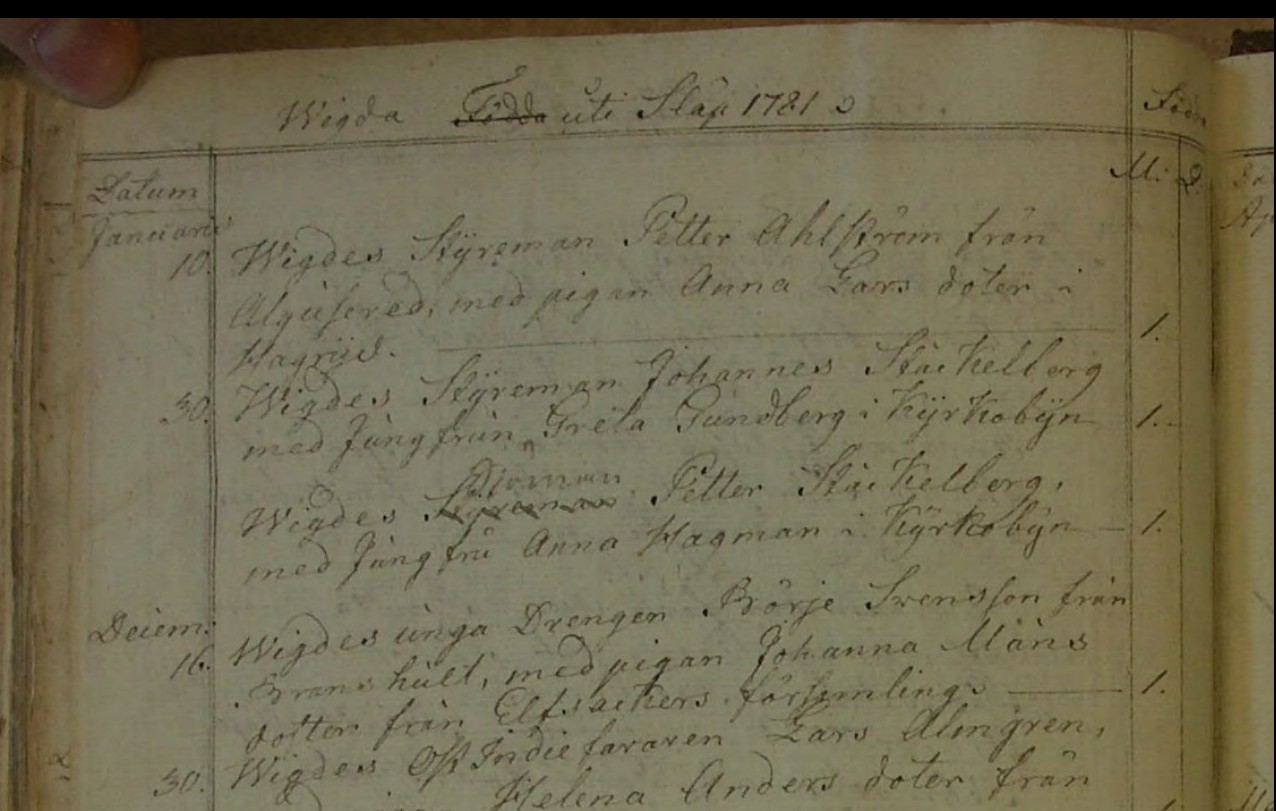 Wigda Födda uti Släp 1781
Födde
M: Q.
Datum
Januarii
10. Wigdes Styreman Petter Ahlström från
Algusered, med pigan Anna Lars doter i
Hagryd. 1.
30. Wigdes Styreman Johannes Stäckelberg
med Jungfrun Greta Gundberg i Kyrkobyn 1.
Sjöman
Wigdes Styreman Petter Stäckelberg,
med Jungfru Anna Hagman i Kyrkobyn 1.
Decem:
16. Wigdes unga Drengen Börje Svensson från
hult, med pigan Johanna Måns
dotter från Elfsåckers församling 1.
30. Wigdes Ost Indiefararen Lars Almgren,
Helena Anders doter från